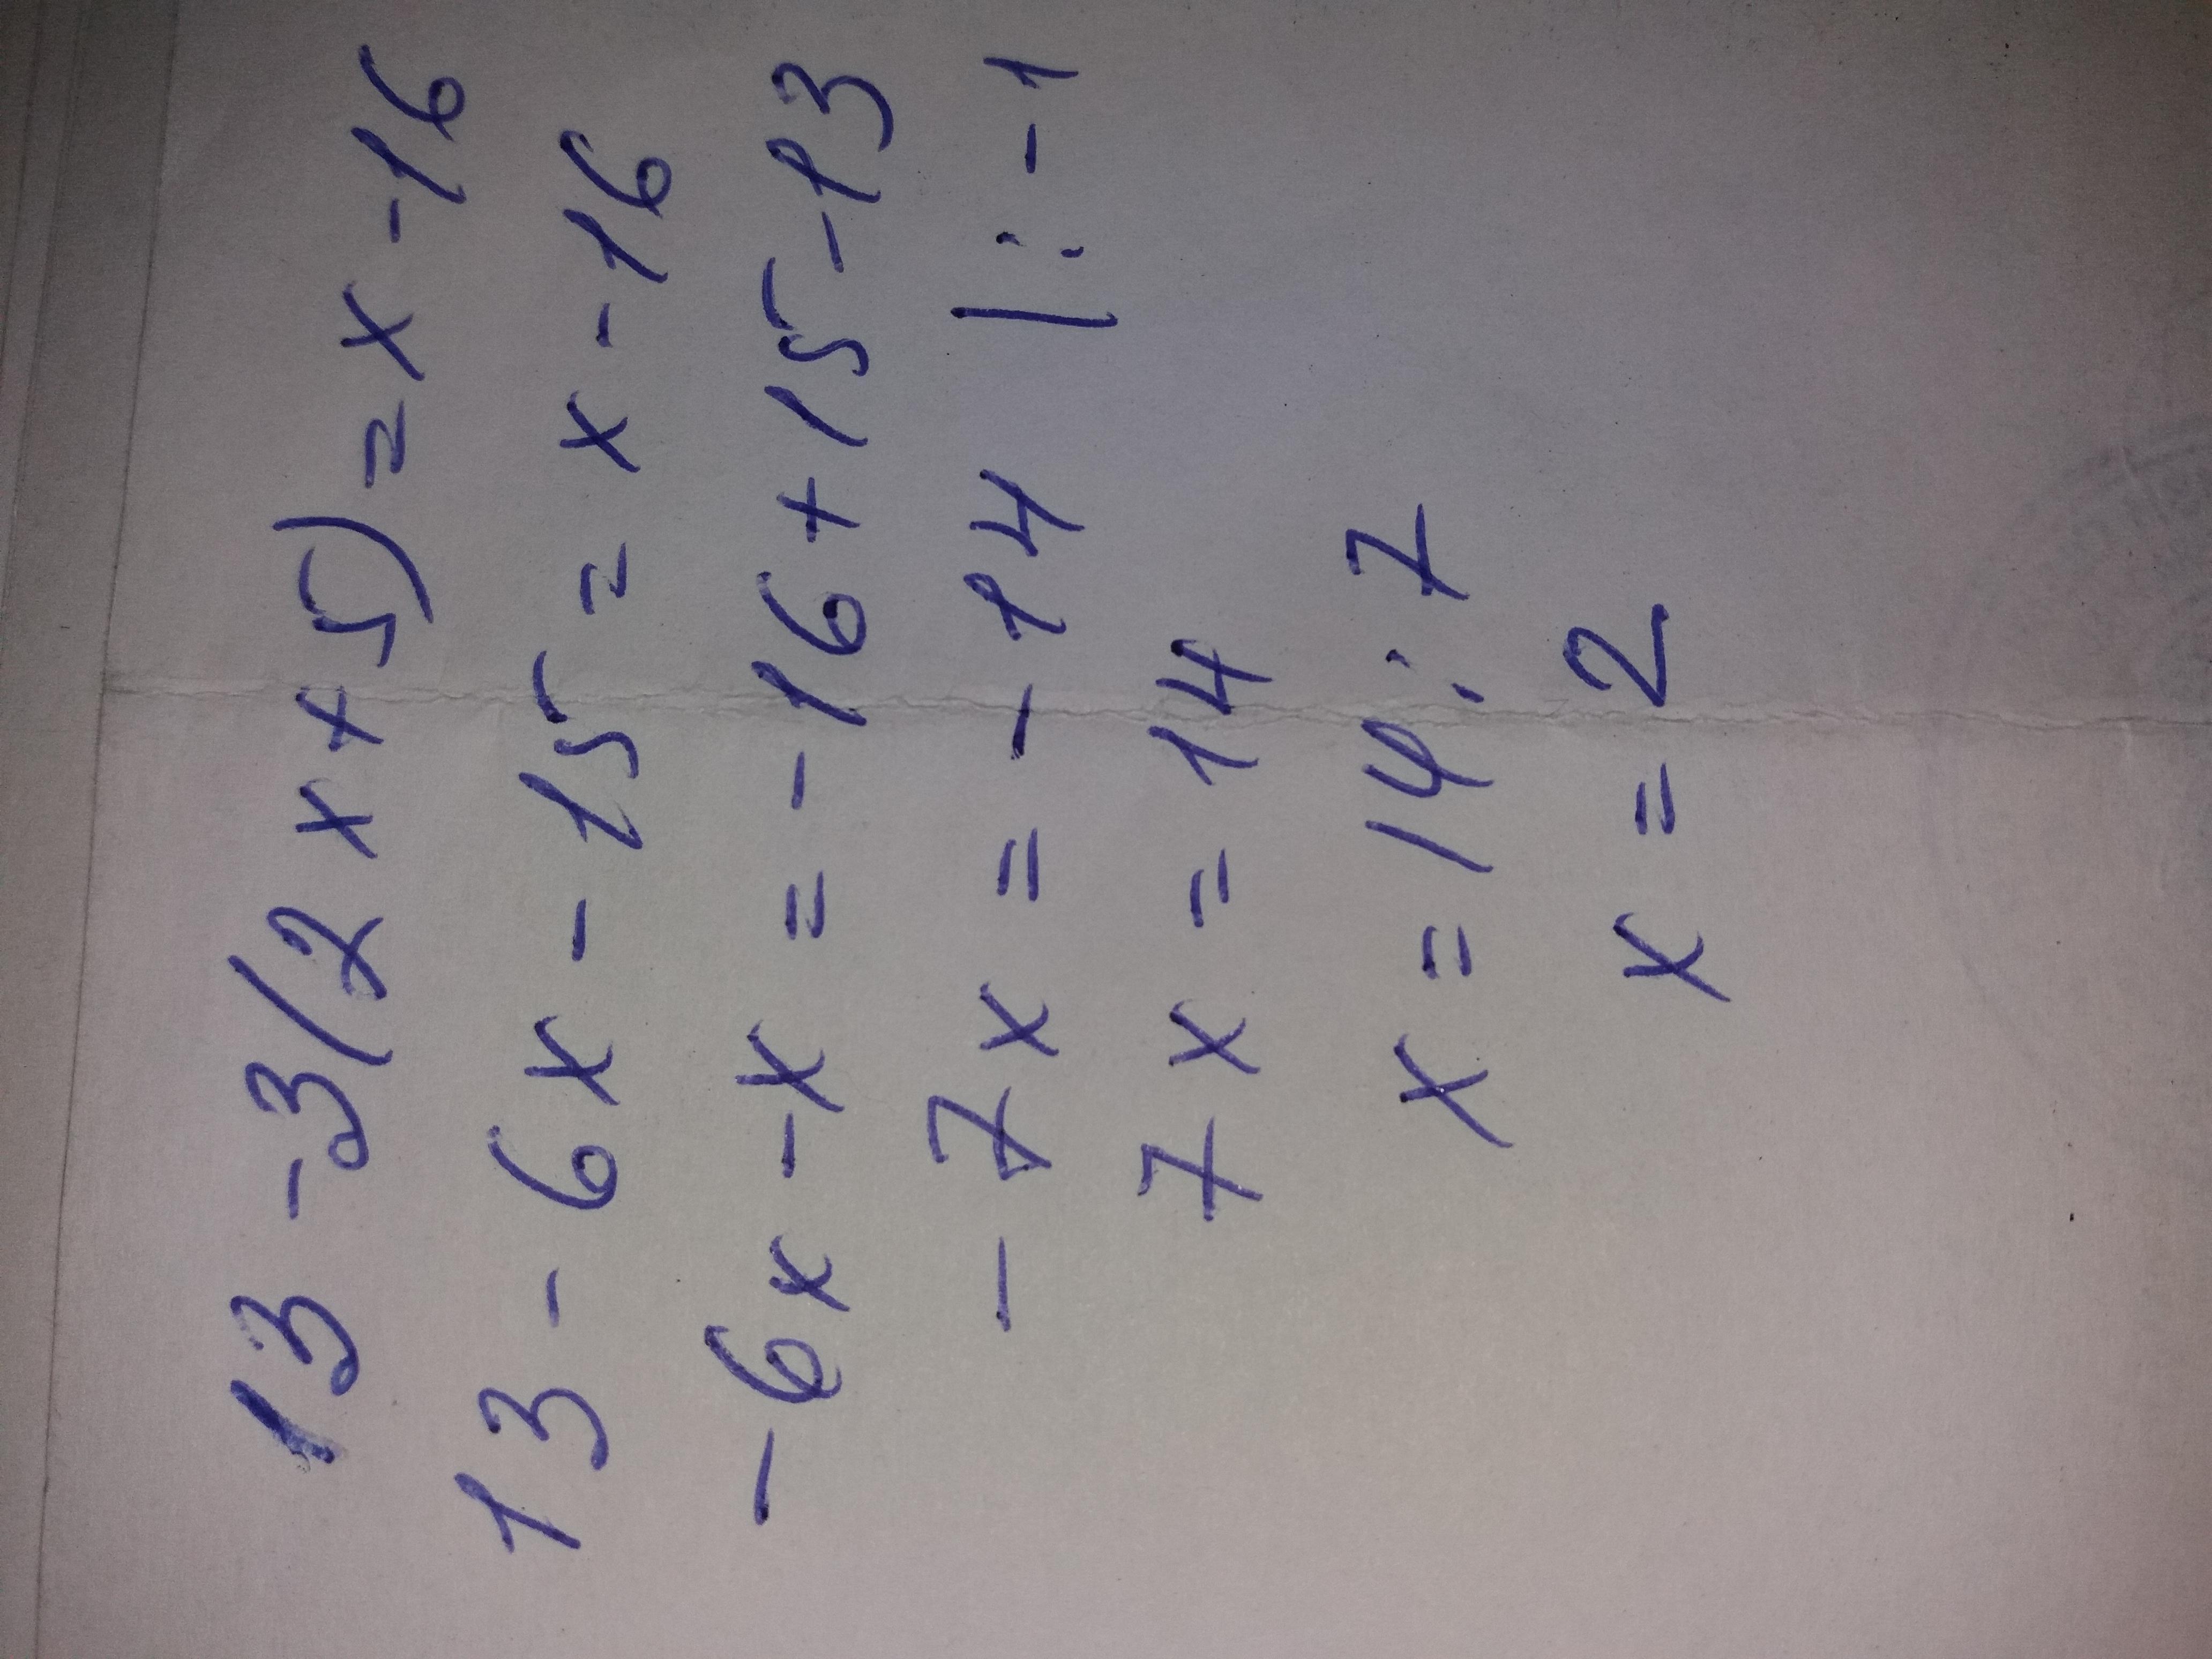 13 - 3(2x+5) = x - 16
13 - 6x - 15 = x - 16
-6x - x = -16 + 15 - 13
-7x = -14 | : -1
7x = 14
x = 14 : 7
x = 2